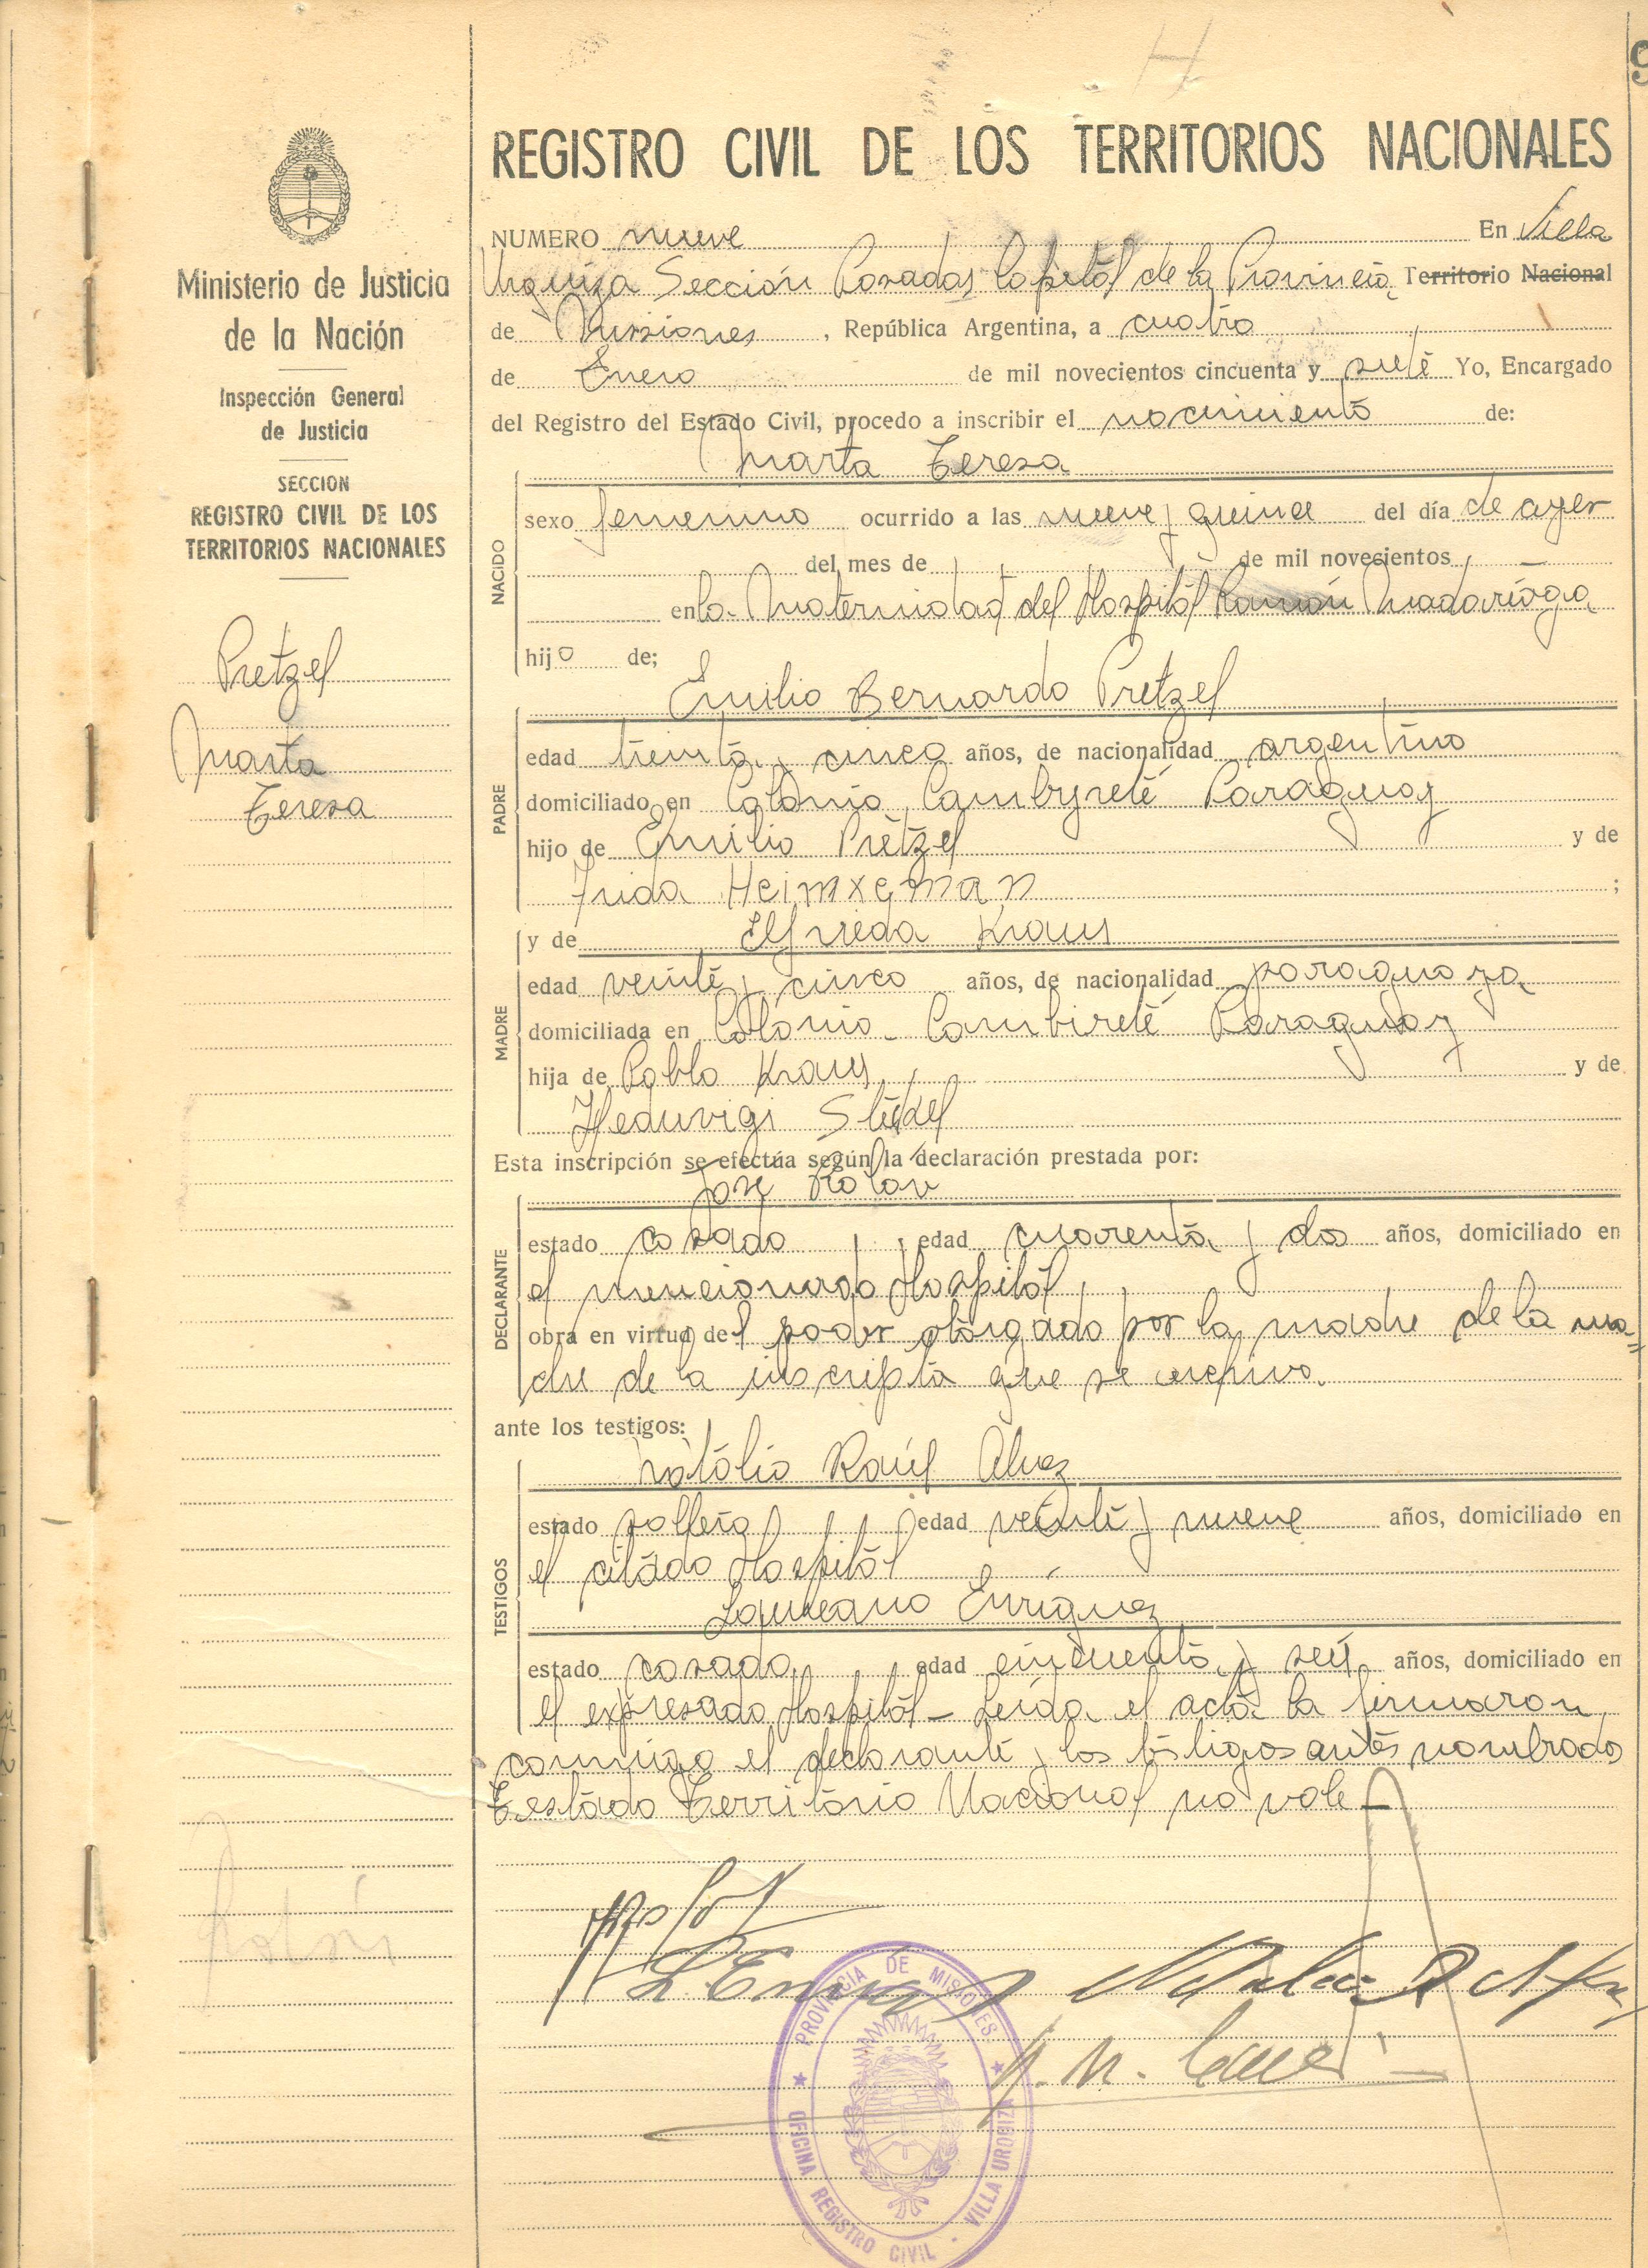 9
REGISTRO CIVIL DE LOS TERRITORIOS NACIONALES
Ministerio de Justicia
de la Nación
Inspección General
de Justicia
SECCION
REGISTRO CIVIL DE LOS
TERRITORIOS NACIONALES
Pretzel
Marta
Teresa
NUMERO nueve En Villa
Urquiza Sección Posadas Capital de la Provincia Territorio Nacional
de Misiones, República Argentina, a cuatro
de Enero de mil novecientos cincuenta y siete Yo, Encargado
del Registro del Estado Civil, procedo a inscribir el nacimiento de:
Marta Teresa
NACIDO
sexo femenino ocurrido a las nueve y quince del día de ayer
del mes de de mil novecientos
en la Maternidad del Hospital Ramón Madariaga
hija de;
Emilio Bernardo Pretzel
PADRE
edad treinta y cinco años, de nacionalidad argentino
domiciliado en Colonia Cambyreté Paraguay
hijo de Emilio Pretzel y de
Frida Heimxeman ;
y de Elfrieda Kraus
MADRE
edad veinte y cinco años, de nacionalidad paraguaya
domiciliada en Colonia Cambireté Paraguay
hija de Pablo Kraus y de
Heduvigi
Esta inscripción se efectúa según la declaración prestada por:
José Rolon
DECLARANTE
estado casado edad cuarenta y dos años, domiciliado en
el mencionado Hospital
obra en virtud del poder otorgado por la madre de la ma=
dre de la inscripta que se archiva.
ante los testigos:
Natalio Raúl Alvez
TESTIGOS
estado soltero edad veinte y nueve años, domiciliado en
el citado Hospital
Laureano Enriquez
estado casado edad cincuenta y seis años, domiciliado en
el expresado Hospital - Leida el acta la firmaron
conmigo el declarante y los testigos antes nombrado
Testado Territorio Nacional no vale -
PROVINCIA DE MISIONES
OFICINA REGISTRO CIVIL - VILLA URQUIZA